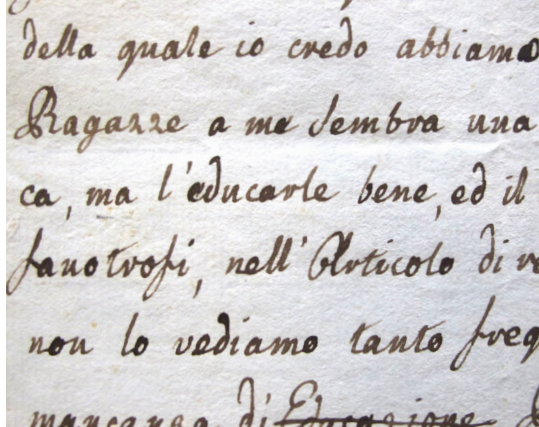 della quale io credo abbiamo
Ragazze a me sembra una
ca, ma l'educarle bene, ed il
fanotrofi, nell'Articolo di
non lo vediamo tanto freq
mancanza di Educazione